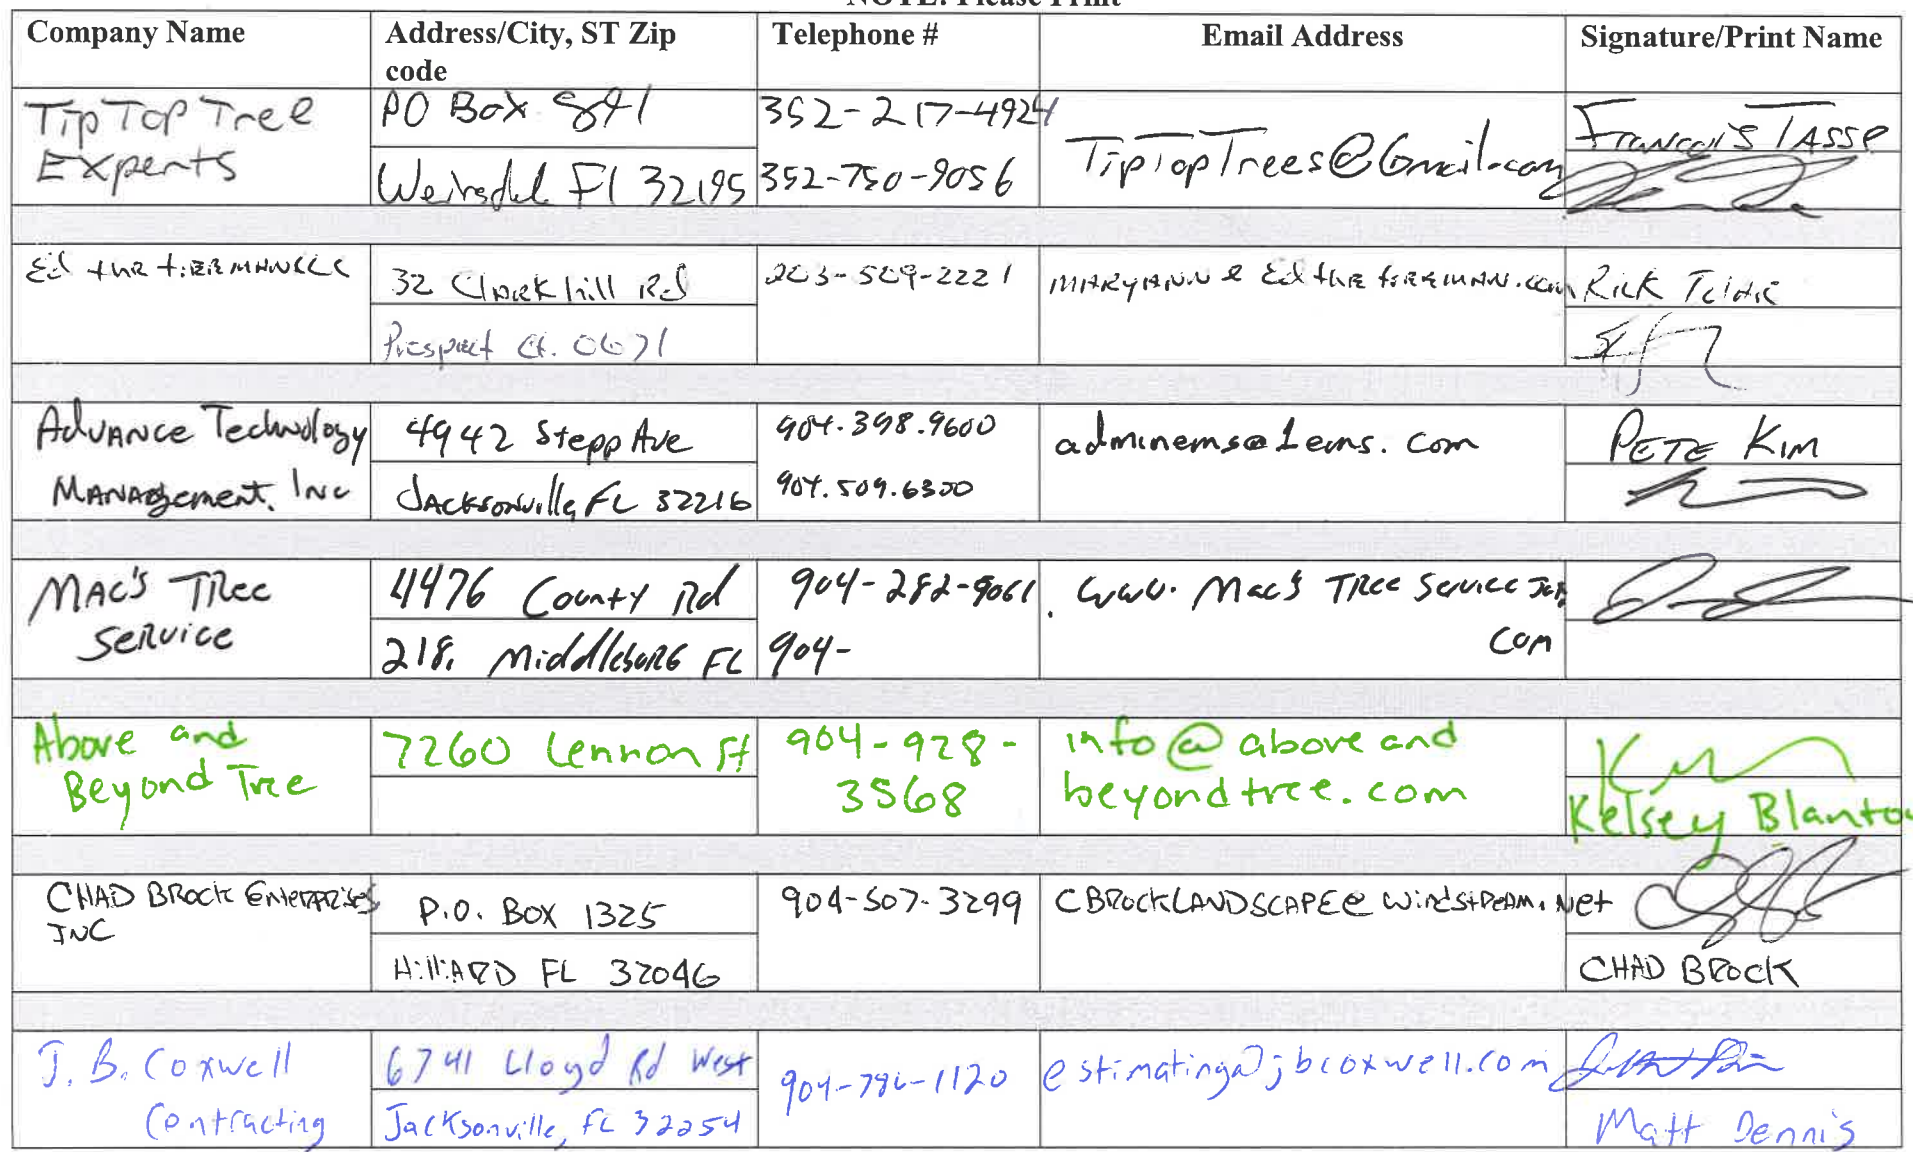 NOTE: Please Print
Company Name
Address/City, ST Zip code
Telephone #
Email Address
Signature/Print Name
Tip Top Tree
Experts
PO Box 841
Weirsdale Fl 32195
352-217-4924
352-750-9056
TipTopTrees@Gmail.com
Francois Tasse
Ed the treeman LLC
32 Clark hill Rd
Prospect Ct. 0671
203-509-2221
MARYANN @ Ed the treeman.com
Rick
Advance Technology
Management. Inc
4942 Stepp Ave
Jacksonville, FL 32216
904.398.9600
904.509.6300
adminems@1ems.com
Pete Kim
Mac's Tree
Service
4476 County Rd
218. Middleburg FL
904-282-9061
904-
www. Mac's Tree Service Jax
com
Above and
Beyond Tree
7260 Lennon St
904-928-
3568
info@above and
beyondtree.com
Kelsey Blanton
CHAD BROCK ENTERPRISES
INC
P.O. BOX 1325
HilliARD FL 32046
904-507-3299
CBROCKLANDSCAPE@windstream.net
CHAD BROCK
J. B. Coxwell
Contracting
6741 Lloyd Rd West
Jacksonville, FL 32254
904-786-1120
estimating@jbcoxwell.com
Matt Dennis